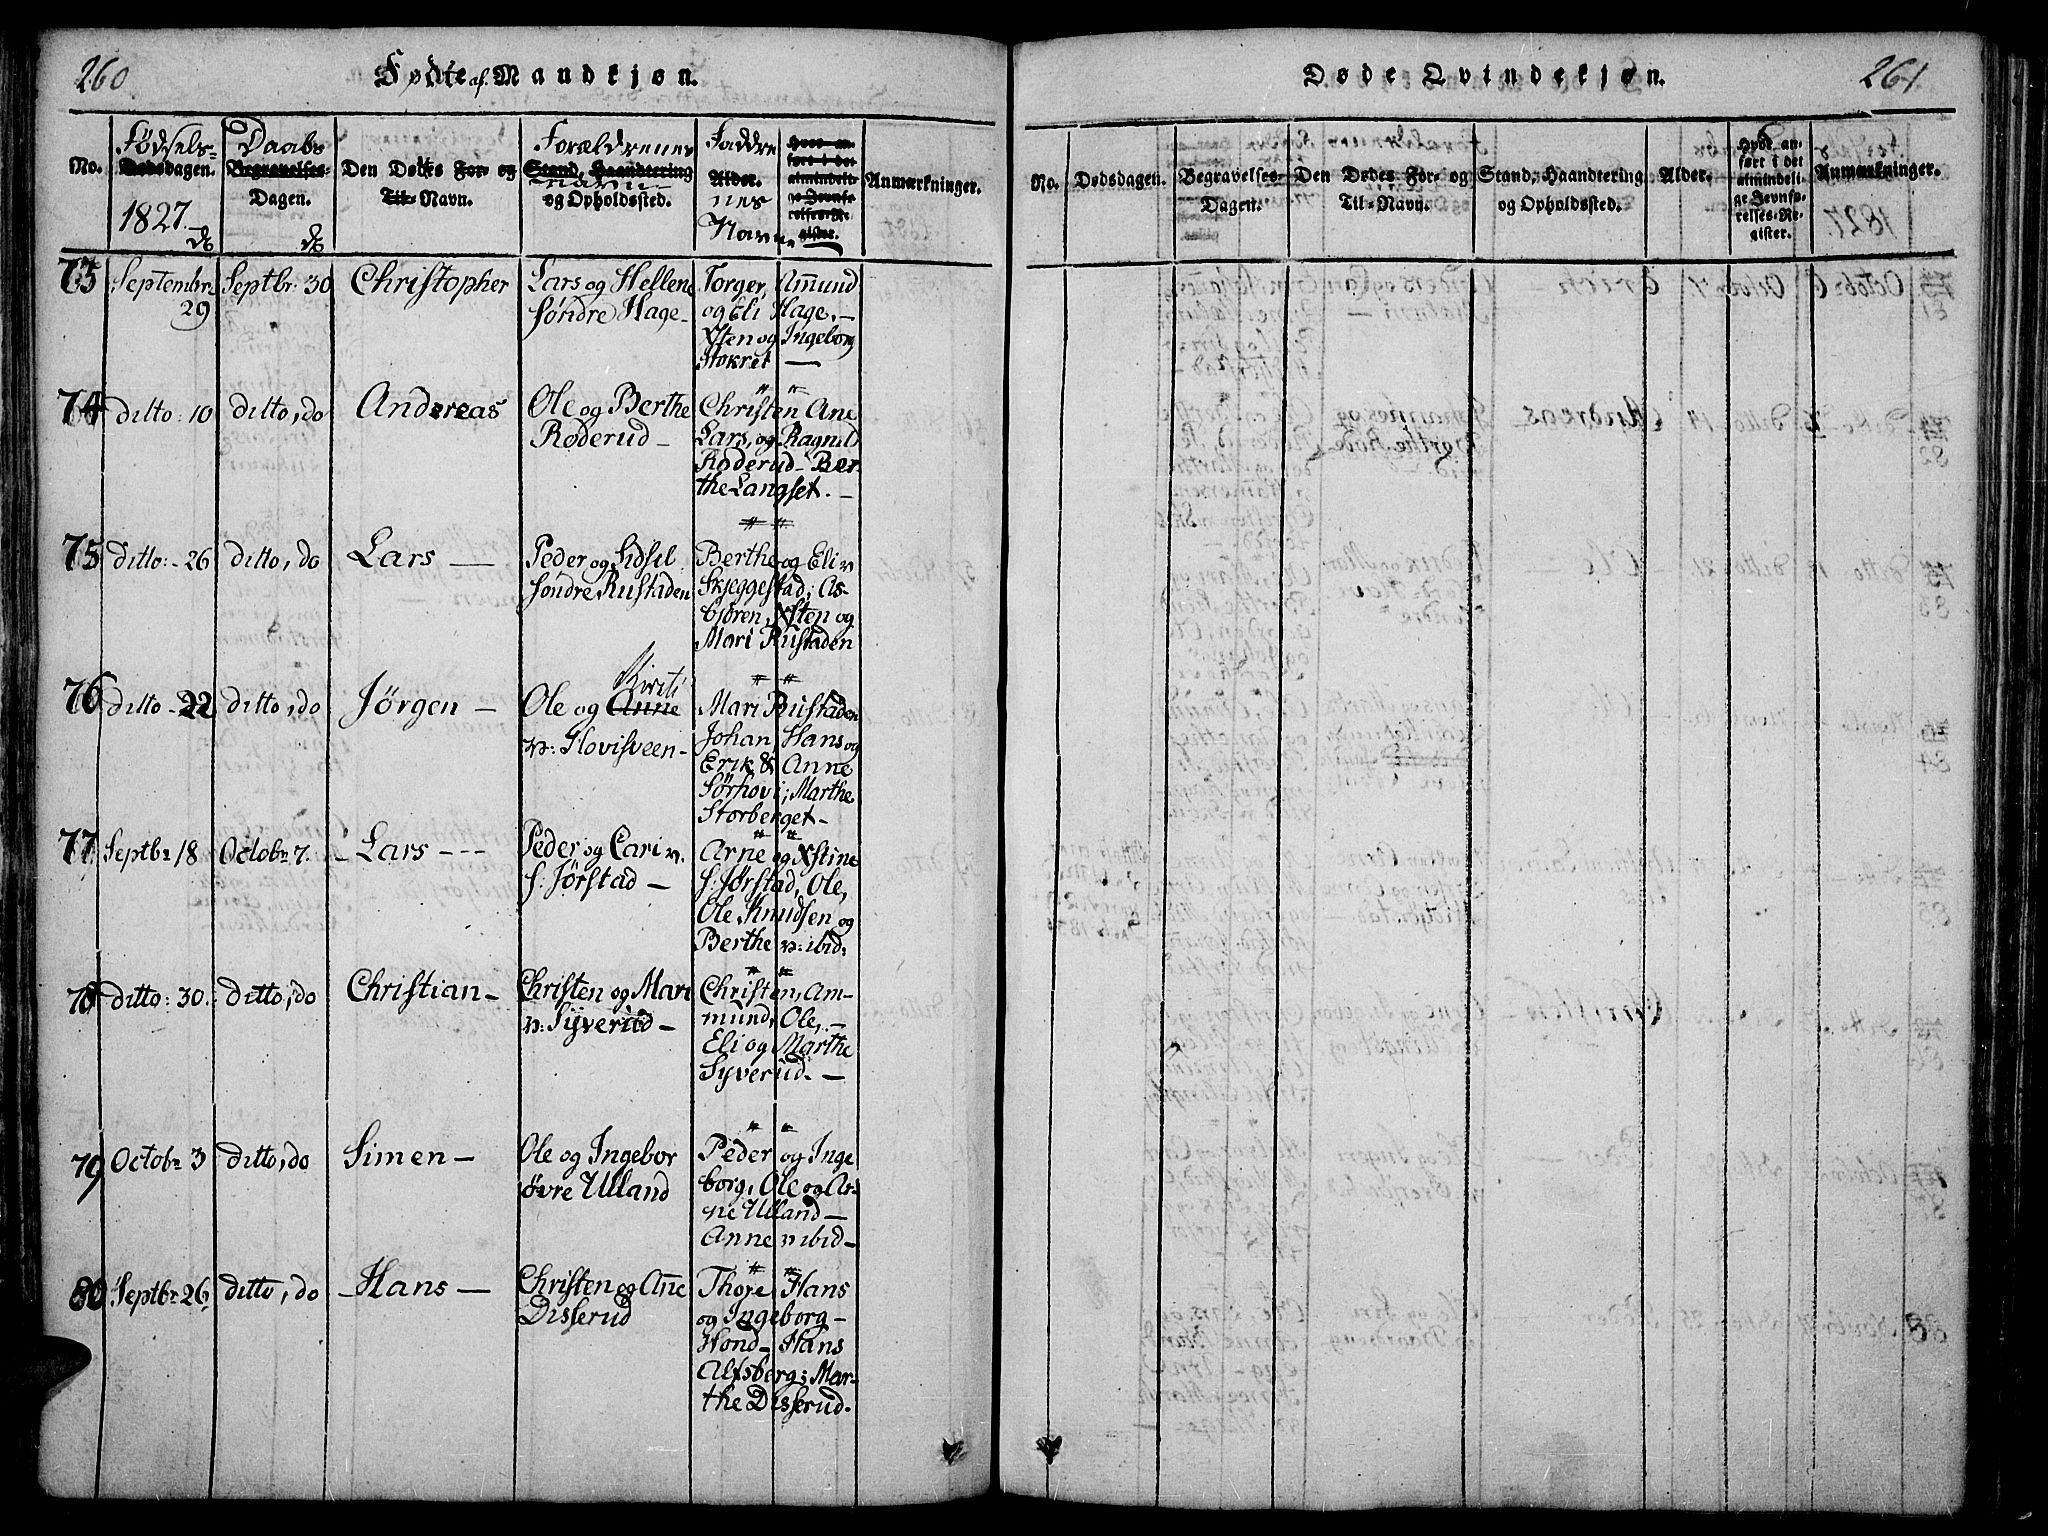 260.
Fødte af Mandkjøn.
No.
Fødsels-
Dødsdagen.
1827.
Daabs
Begravelses-
Dagen.
Den Dødes For- og
Til-Navn.
Forældrenes
Stand, Haandtering
navn
og Opholdssted.
Faddre
Alder.
nes
Navne
Hvor an-
ført i det
almindeli-
ge Jevnfø-
relses-Re-
gister.
Anmærkninger.
73 Septembr: 29
Septbr: 30
Christopher
Lars og Hellene
søndre Hage-
Torger, Amund
og Eli Hage.-
Xsten og Ingeborg
Stokret —
74 ditto: 10
ditto, do
Andreas
Ole og Berthe
Røderud-
Christen Ane
Lars, og Ragnild
Røderud- Ber-
the Langset. -
75 ditto: - 26
ditto, do
Lars —
Peder og Sidsel
søndre Rustaden
Berthe og Eli n
Skjeggestad; As-
bjøren, Xsten og
Mari Rustaden
76 ditto - 22
ditto, do
Jørgen -
Kirsti
Ole og Anne
n: Hovisveen-
Mari Rustaden
Johan, Hans og
Erik & Anne
Sørhovi; Marthe
Storberget-
77 Septbr 18
Octobr 7.
- Lars ---
Peder og Cari n.
s: Jørstad -
Arne og Xstine
s: Jørstad, Ole,
Ole Knudsen og
Berthe n: ibid:
78 ditto: 30.
ditto, do
Christian-
Christen og Mari
n: Syverud-
Christen, Am-
mund, Ole,.-
Eli og Marthe
Syverud. -
79 Octobr 3
ditto, do
Simen -
Ole og Ingebor
øvre Ulland
Peder og Inge
borg, Ole og Ar-
ne Ulland -
Anne n ibid-
80 Septbr 26,
ditto, do
- Hans -
Christen og Ane
Disserud
Thore Hans
og Ingeborg-
Hond- Hans
Alfsberg; Mar-
the Disserud.
261
Døde Qvindekjøn.
No.
Dødsdagen.
Begravelses-
Dagen.
Den Dødes For- og
Til-Navn.
Stand, Haandtering
og Opholdssted.
Alder.
Hvor an-
ført i det
almindeli-
ge Jevnfø-
relses-Re-
gister.
Anmærkninger.